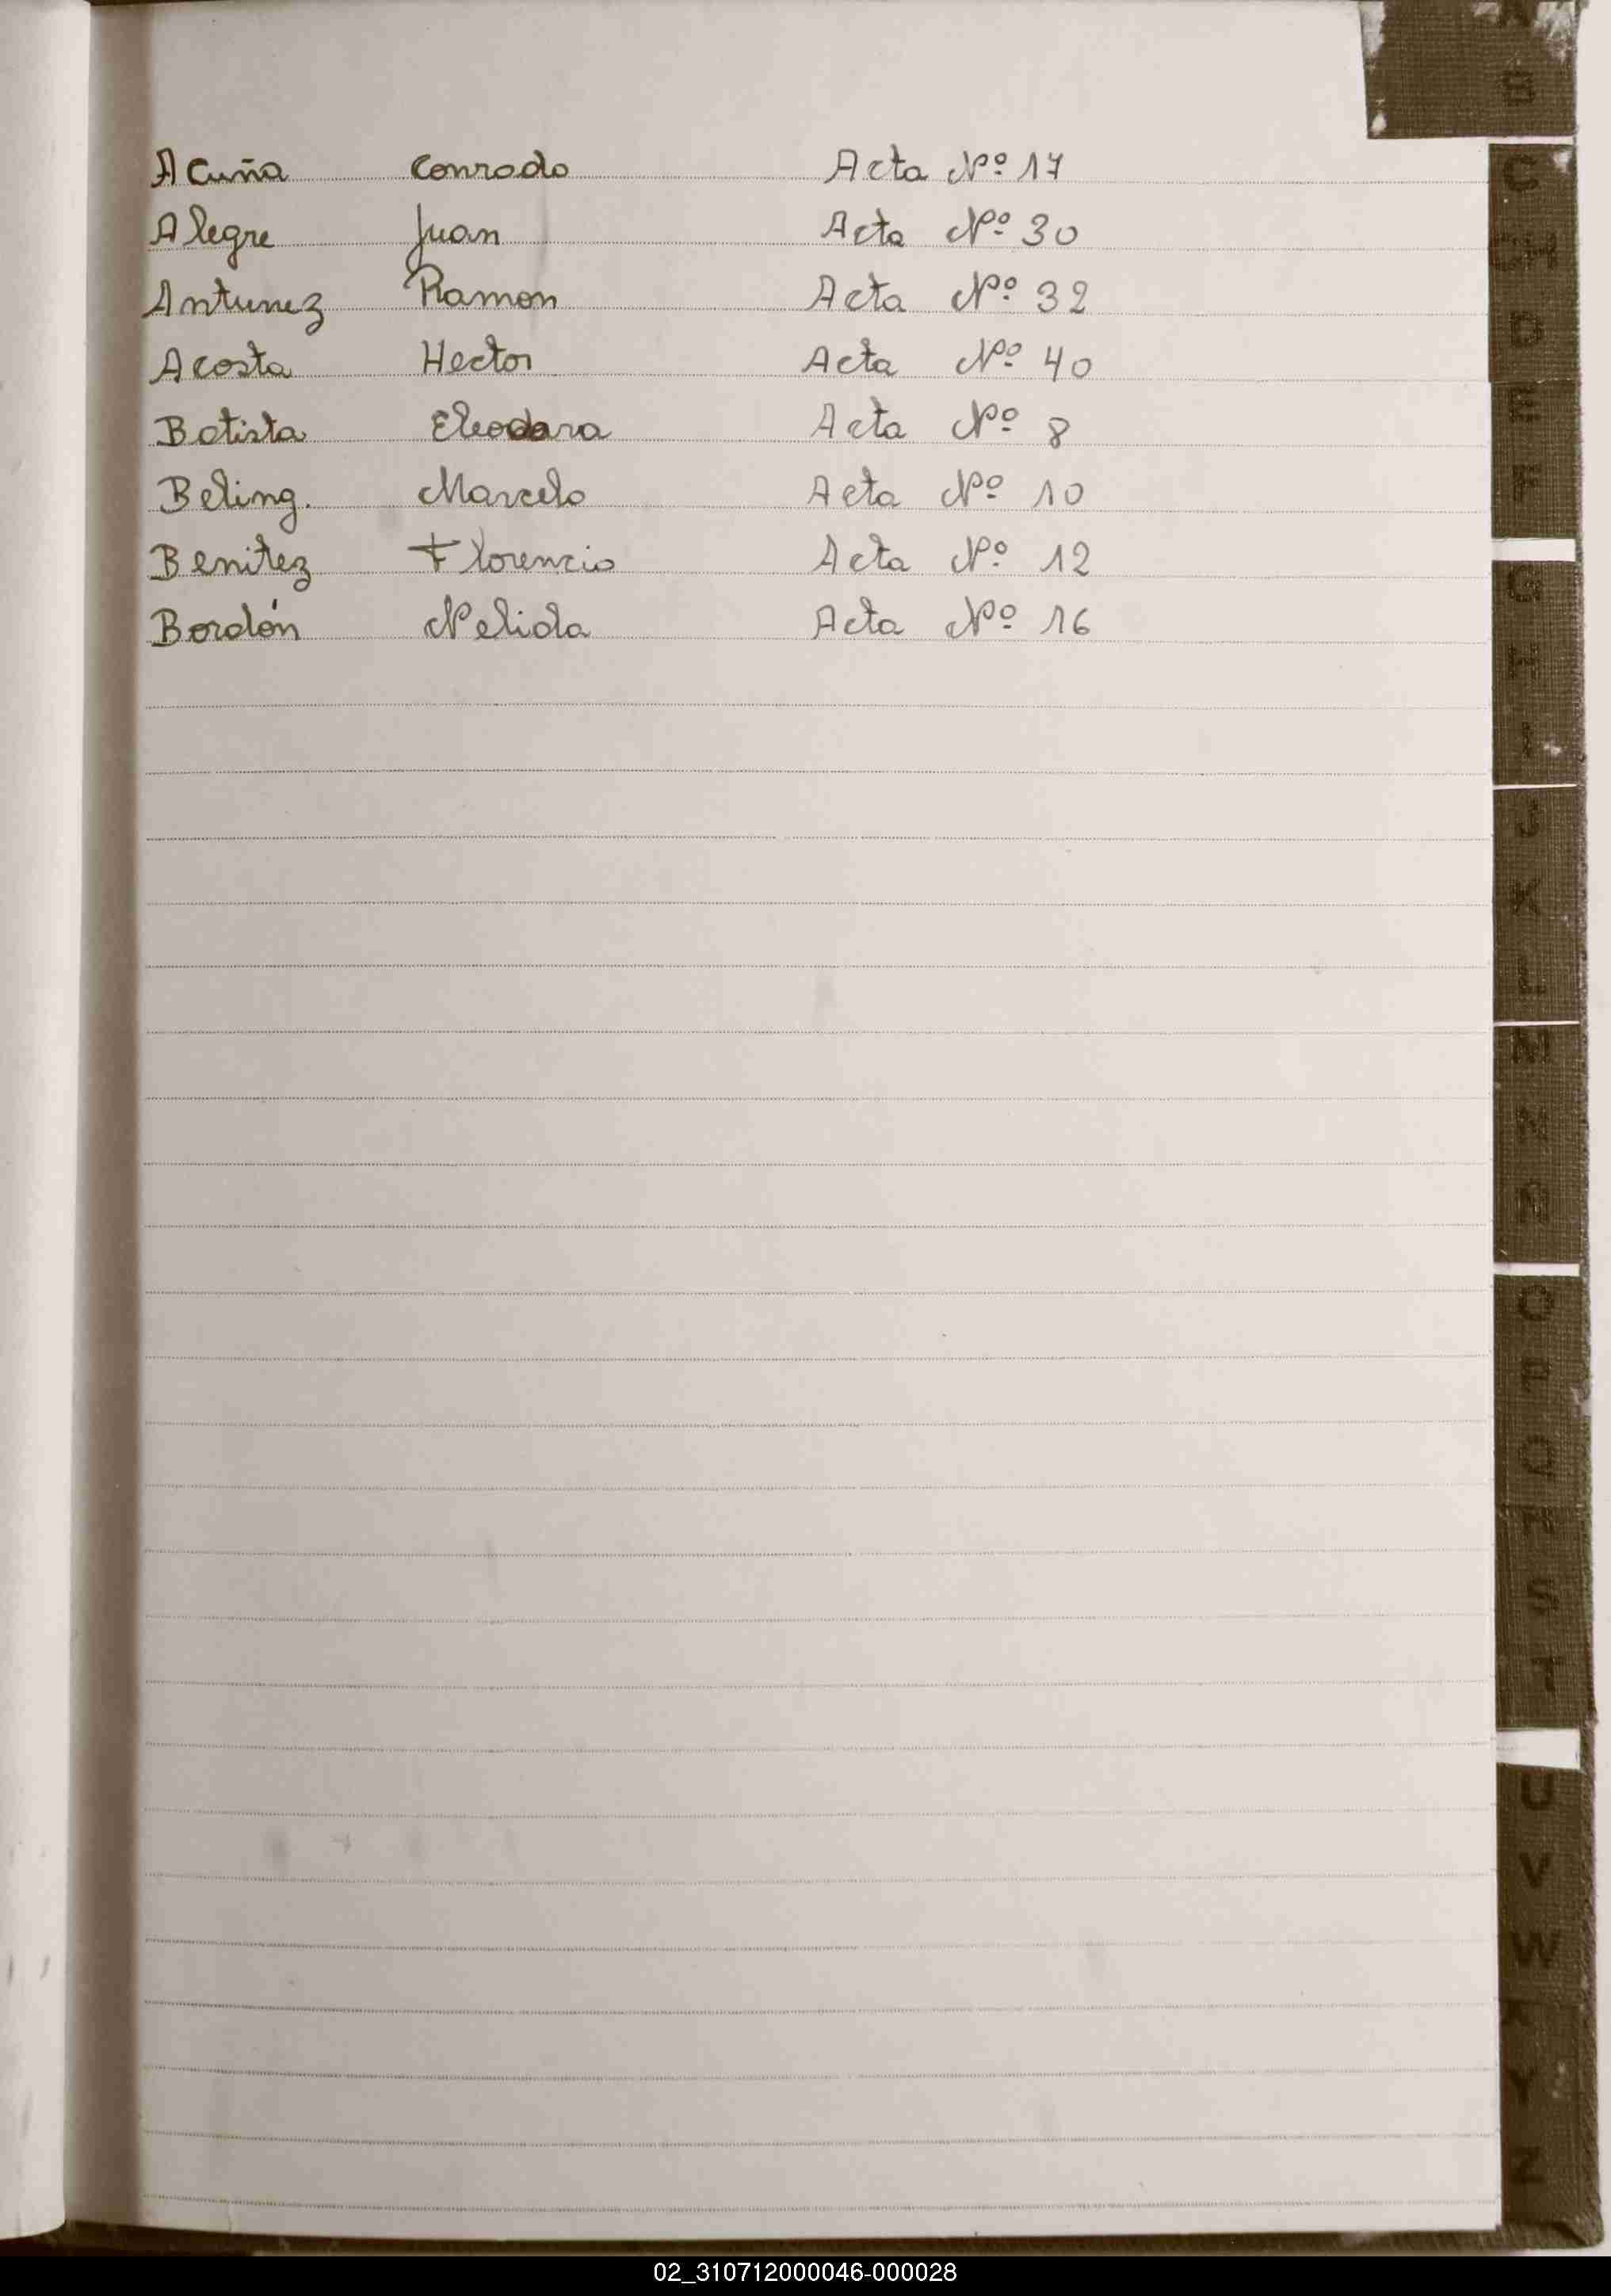 Acuña Conrado Acta Nº 17
Alegre Juan Acta Nº 30
Antunez Ramon Acta Nº 32
Acosta Hector Acta Nº 40
Batista Eleodora Acta Nº 8
Beling. Marcelo Acta Nº 10
Benitez Florencio Acta Nº 12
Bordón Nelida Acta Nº 16
B
C
CH
D
E
F
G
H
I
J
K
L
M
N
Ñ
O
P
Q
R
S
T
U
V
W
X
Y
Z
02_310712000046-000028